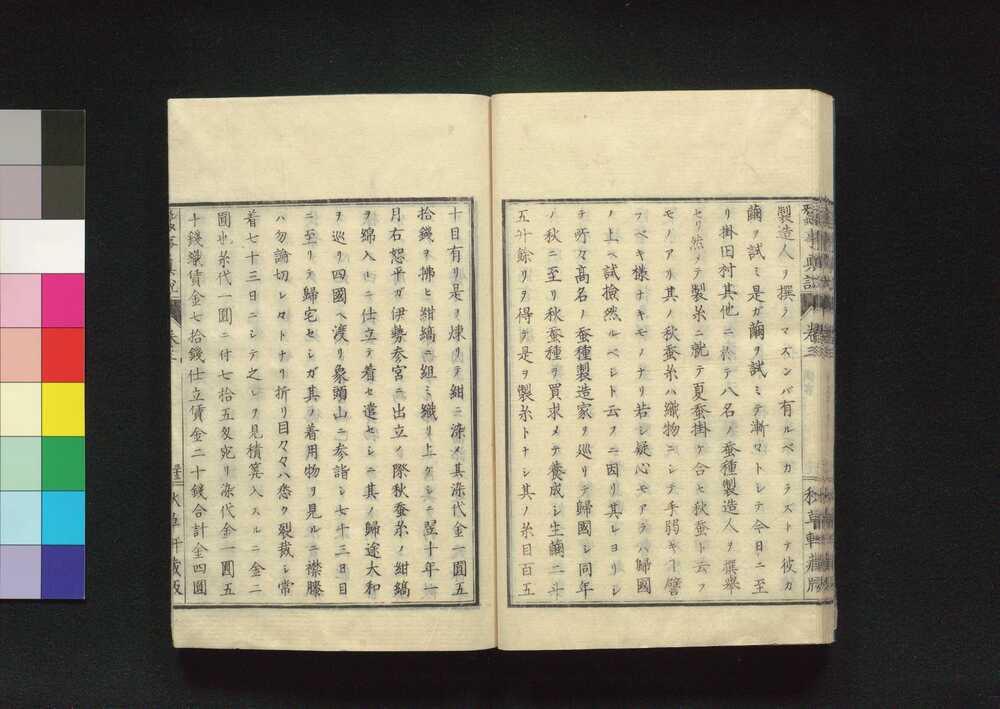 製造人ヲ撰ラマズンバ有ルベカラズトテ彼カ
繭ヲ試ミ是ガ繭ヲ試ミテ漸マトシテ今日ニ至
リ掛田村其他ニ於テ八名ノ蚕種製造人ヲ撰挙
セリ然メテ製糸ニ就テ夏蚕掛ケ合セ秋蚕ト云フ
モノアリ其ノ秋蚕糸ハ織物ニシテ手弱キヿ譬
フベキ様ナキモノナリ若シ疑心モアラハ帰國
ノ上ベ試撿然ルベシト云フニ因リ其レヨリシ
テ所々高名ノ蚕種製造家ヲ巡リテ帰國シ同年
ノ秋ニ至リ秋蚕種ヲ買求メテ養成シ生繭二斗
五升餘リヲ得テ是ヲ製糸トナシ其ノ糸目百五
十目有リ是ヲ煉リテ紺ニ染メ其染代金一圓五
拾錢ヲ拂ヒ紺縞ニ組ミ織リ上ケシニ翌十年一
月右恕平ガ伊勢参宮ニ出立ノ際秋蚕糸ノ紺縞
ヲ綿入レニ仕立テ着セ遣セシニ其ノ帰途大和
ヲ巡リ四國ヘ渡リ象頭山ニ参詣シ七十三日目
ニ至リテ歸宅セシガ其ノ着用物ヲ見ルニ襟膝
ハ勿論切レマトナリ折リ目々々ハ悉ク裂裁シ常
着七十三日ニシテ之レヲ見積算入スルニ金二
圓也糸代一圓ニ付七拾五匁宛リ染代金一圓五
十錢織賃金七拾錢仕立賃金二十錢合計金四圓